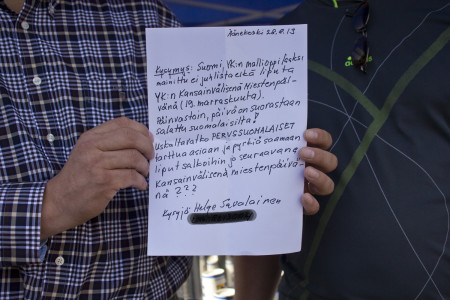 Äänekoski 28.8.13
Kysymys: Suomi, YK:n mallioppilaaksi
mainittu ei juhlista eikä liputa
YK:n Kansainvälisenä Miestenpäi-
vänä (19. marraskuuta).
Päinvastoin, päivä on suorastaan
salattu suomalaisilta!
Uskaltavatko PERUSSUOMALAISET
tarttua asiaan ja pyrkiä saamaan
liput salkoihin jo seuraavana
Kansainvälisenä miestenpäivä-
nä ???
Kysyjä Helge Savolainen